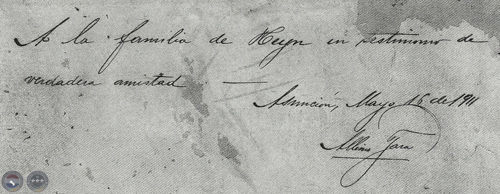 A la familia de Heyn en testimonio de
verdadera amistad. —
Asunción, Mayo 16 de 1911
Albino Jara